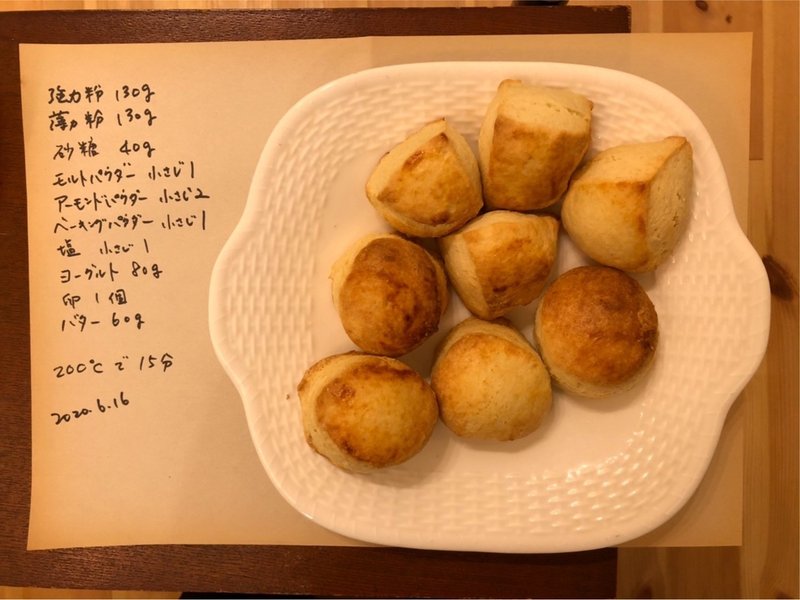 強力粉 130g
薄力粉 130g
砂糖 40g
モルトパウダー 小さじ1
アーモンドパウダー 小さじ2
ベーキングパウダー 小さじ1
塩 小さじ1
ヨーグルト 80g
卵 1個
バター 60g
200℃で15分
2020.6.16